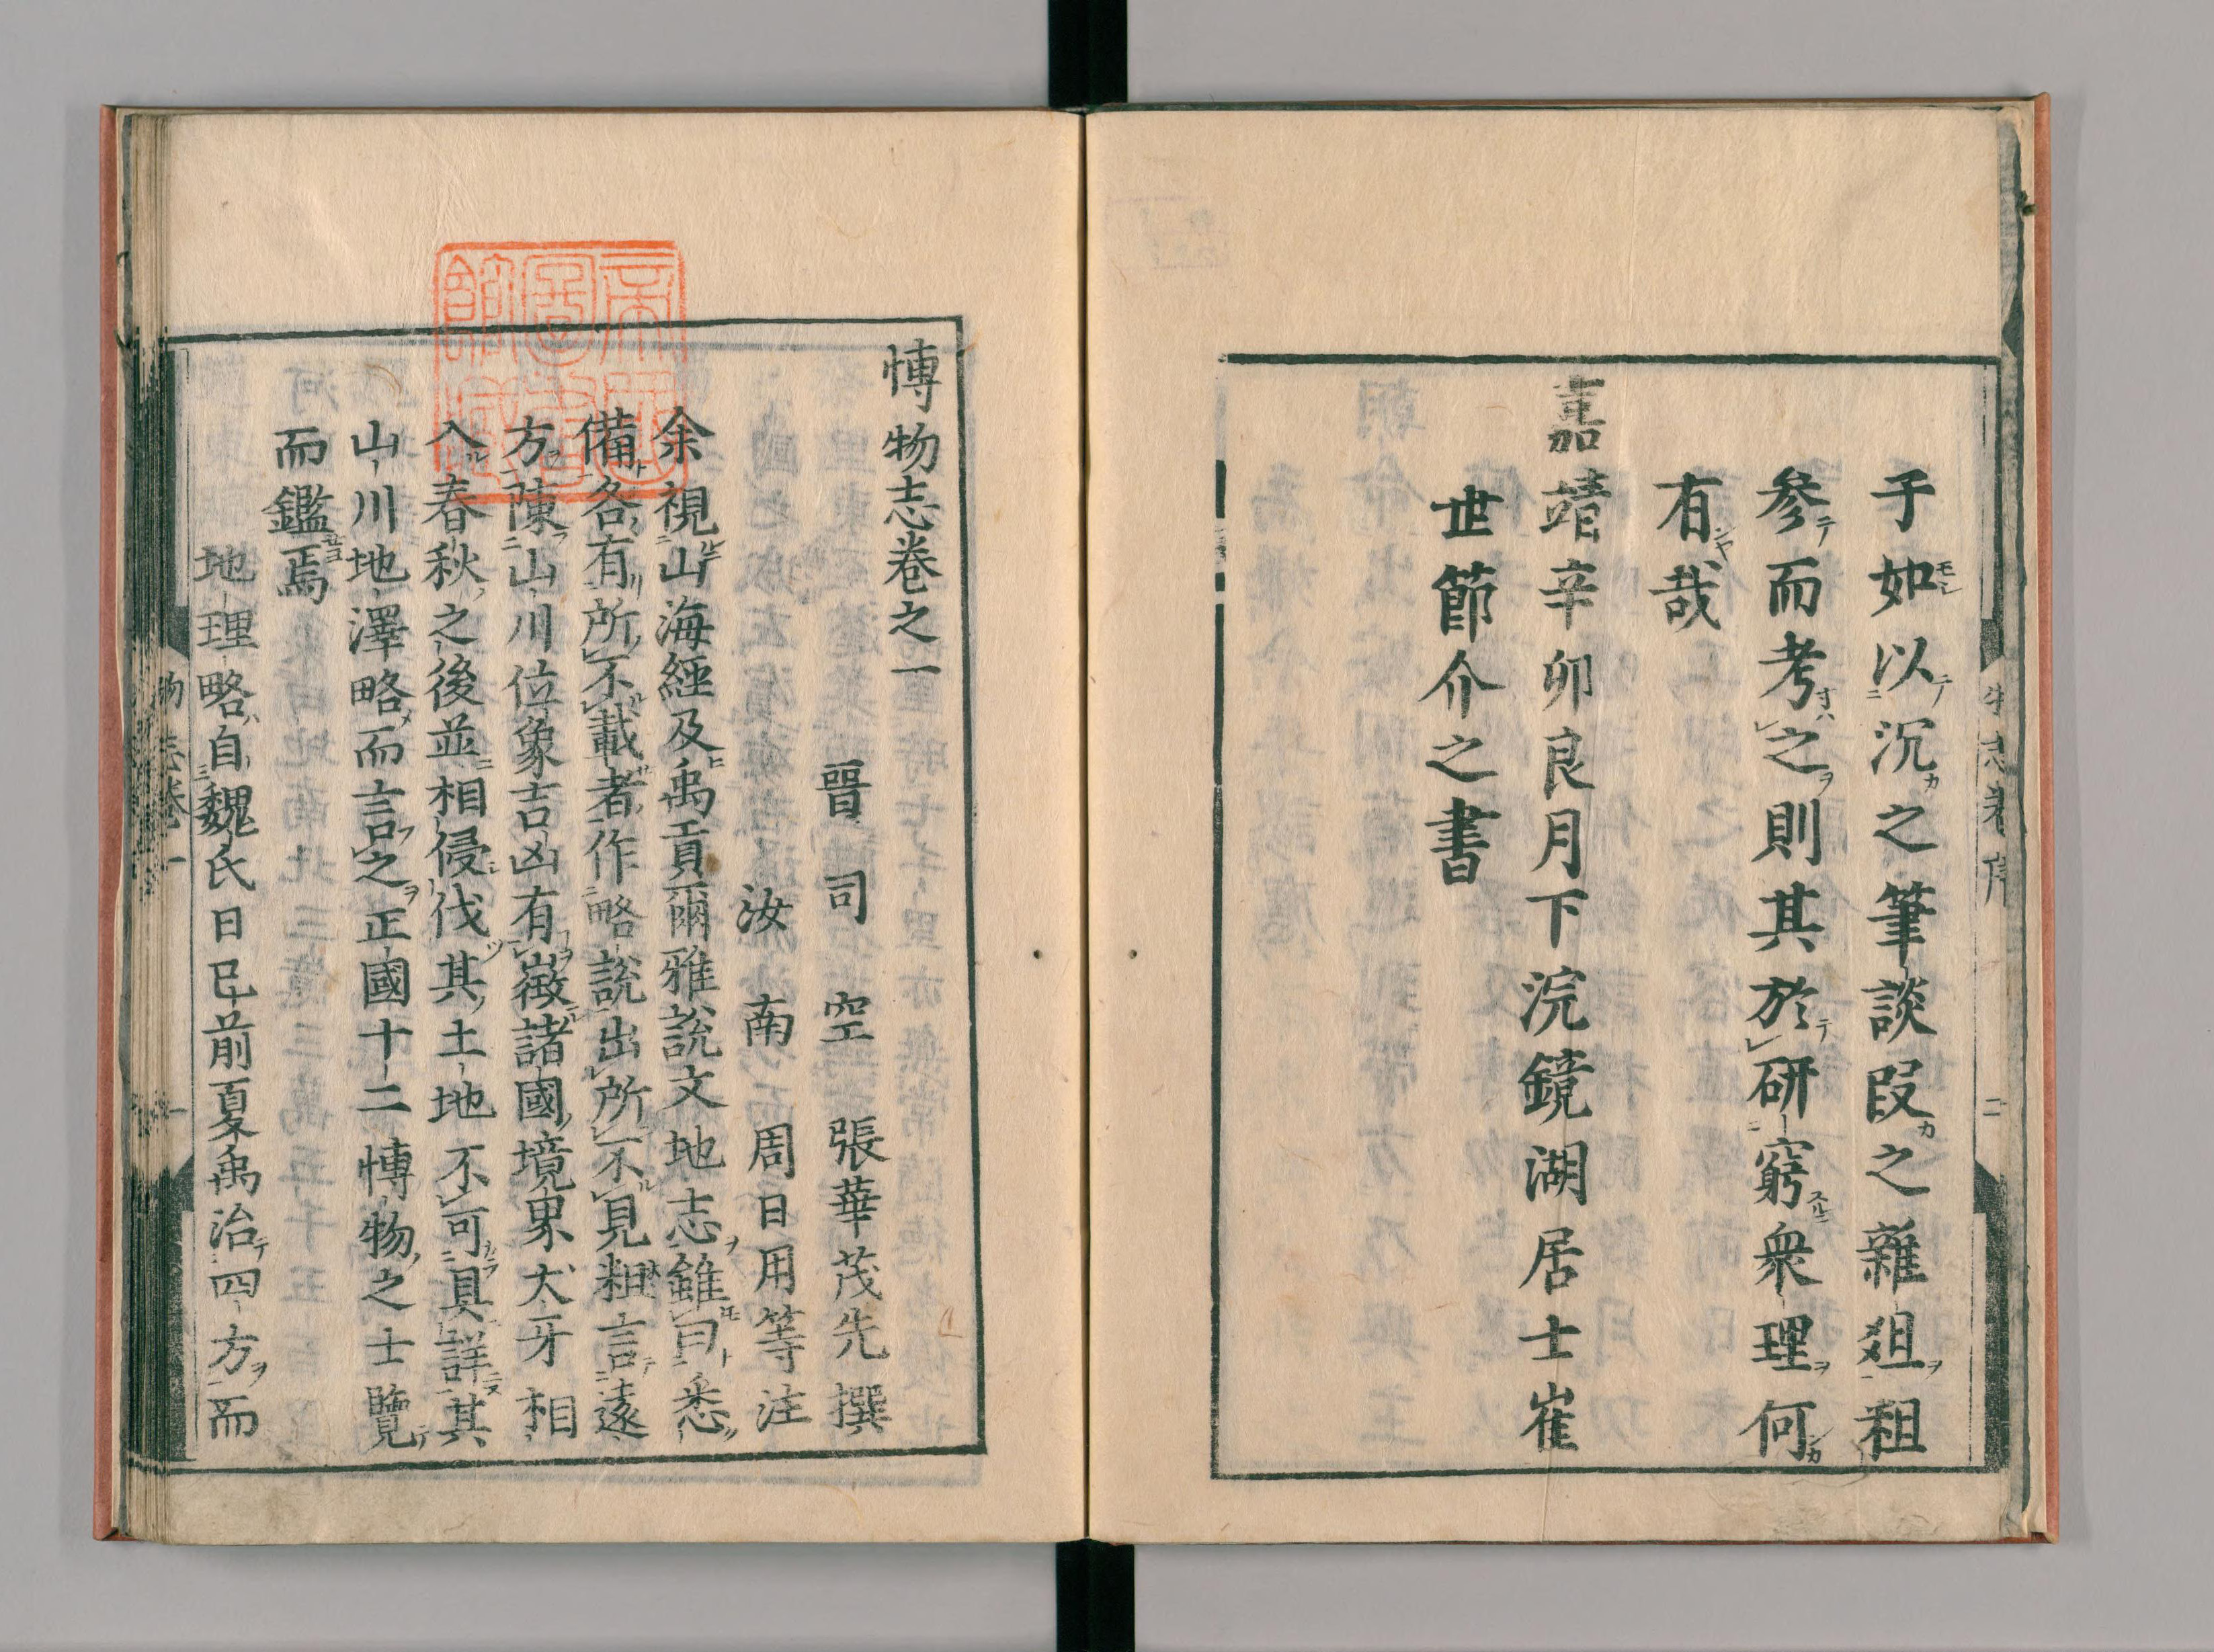 于如以沉之筆談叚之雜俎祖
参而考之則其於研窮衆理何
有哉
嘉靖辛卯良月下浣鏡湖居士崔
世節介之書
愽物志卷之一
晉司空張華茂先撰
汝南周日用等注
余視山海經及禹貢爾雅說文地志雖曰悉
備各有所不載者作略說出所不見粗言遠
方陳山川位象吉凶有徴諸國境界犬牙相
入春秋之後並相侵伐其土地不可具詳其
山川地澤略而言之正國十二愽物之士覽
而鑑焉
地理略自魏氏日已前夏禹治四方而